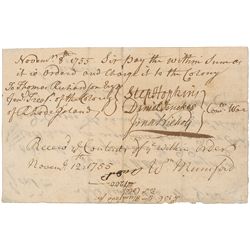 Novem.r 8th 1755 Sir pay the within Sum as
it is Orderd and Charge it to the Colony
To Thomas Richardson Esq
Gen.l Treas.r of the Colony
of Rhode Island
Step Hopkins
Daniel Jenckes
Jonn Nichols
Com.tee War
Receiv'd Contents of ye within Order
Novem.r 12. 1755
Wm Mumford